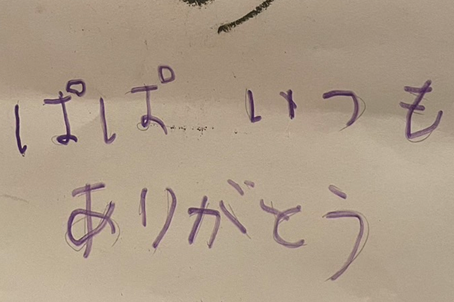 ぱぱ いつも
ありがとう